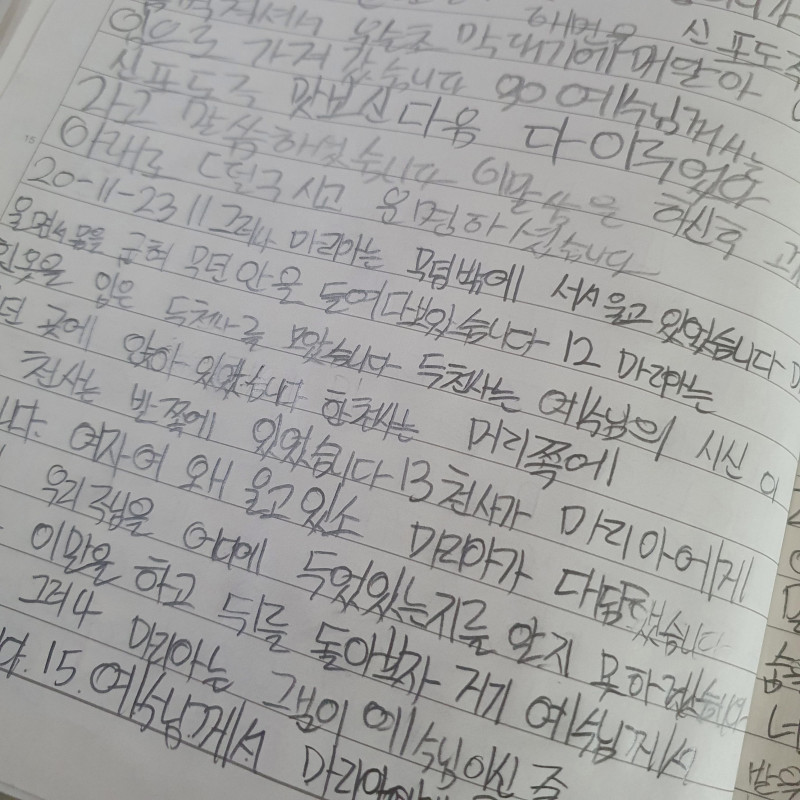 해면을 신 포도주
우슬초 막대기에 매달아
입으로 가져 갔습니다 30 예수님께서는
신포도주 맛보신 다음 다 이루었다
라고 말씀하셨습니다 이말씀을 하신후 고개
아래로 떨구시고 운명하셨습니다
20-11-23 11 그러나 마리아는 무덤밖에 서서 울고 있었습니다
몸을 굽혀 무덤 안을 들여다보았습니다 12 마리아는
흰옷을 입은 두천사를 보았습니다 두천사는 예수님의 시신 이
던 곳에 앉아 있었습니다 한천사는 머리쪽에
천사는 반쪽에 있었습니다 13 천사가 마리아에게
니다. 여자여 왜 울고있소 마리아가 대답했습니다
우리 주님을 어디에 두었있는지를 알지 못하겠습니다
이말을 하고 뒤를 돌아보자 저기 예수님께서
그러나 마리아는 그분이 예수님이신 줄
다. 15. 예수님께서 마리아